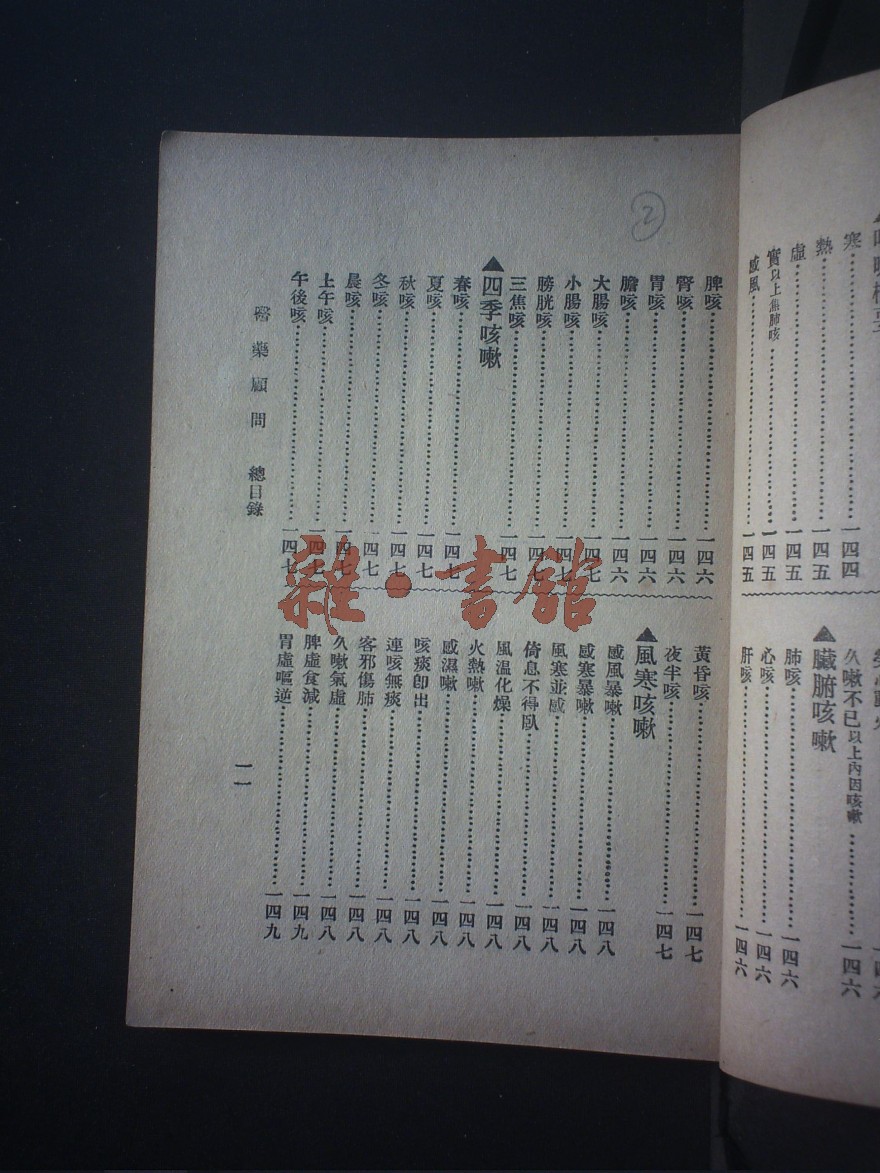 寒……一四四
熱……一四五
虛……一四五
實以上焦肺咳……一四五
感風……一四五
久嗽不已以上內因咳嗽……一四六
▲臟腑咳嗽
肺咳……一四六
心咳……一四六
肝咳……一四六
②
脾咳……一四六
腎咳……一四六
胃咳……一四六
膽咳……一四六
大腸咳……一四七
小腸咳……一四七
膀胱咳……一四七
三焦咳……一四七
▲四季咳嗽
春咳……一四七
夏咳……一四七
秋咳……一四七
冬咳……一四七
晨咳……一四七
上午咳……一四七
午後咳……一四七
黃昏咳……一四七
夜半咳……一四七
▲風寒咳嗽
感風暴嗽……一四八
感寒暴嗽……一四八
風寒並感……一四八
倚息不得臥……一四八
風溫化燥……一四八
火熱嗽……一四八
感濕嗽……一四八
咳痰卽出……一四八
連咳無痰……一四八
客邪傷肺……一四八
久嗽氣虛……一四八
脾虛食減……一四九
胃虛嘔逆……一四九
醫藥顧問 總目錄
一一
雜·書館